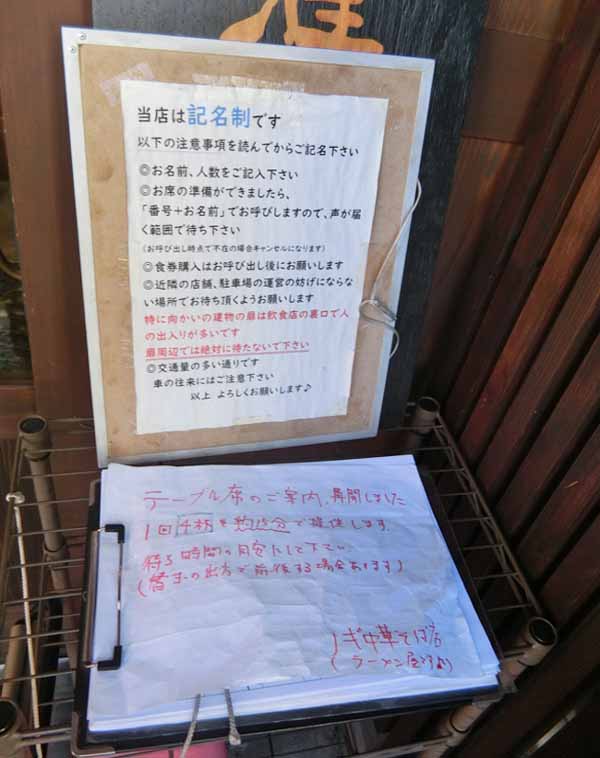 当店は記名制です
以下の注意事項を読んでからご記名下さい
◎お名前、人数をご記入下さい
◎お席の準備ができましたら、
「番号＋お名前」でお呼びしますので、声が届
く範囲で待ち下さい
（お呼び出し時点で不在の場合キャンセルになります）
◎食券購入はお呼び出し後にお願いします
◎近隣の店舗、駐車場の運営の妨げにならな
い場所でお待ち頂くようお願いします
特に向かいの建物の扉は飲食店の裏口で人
の出入りが多いです
扉周辺では絶対に待たないで下さい
◎交通量の多い通りです
車の往来にはご注意下さい
以上 よろしくお願いします♪
テーブル席のご案内、再開しました
1回4杯を約15分で提供します。
待ち時間の目安にして下さい
の出方で前後する場合あります）
中華そば店
（ラーメン屋